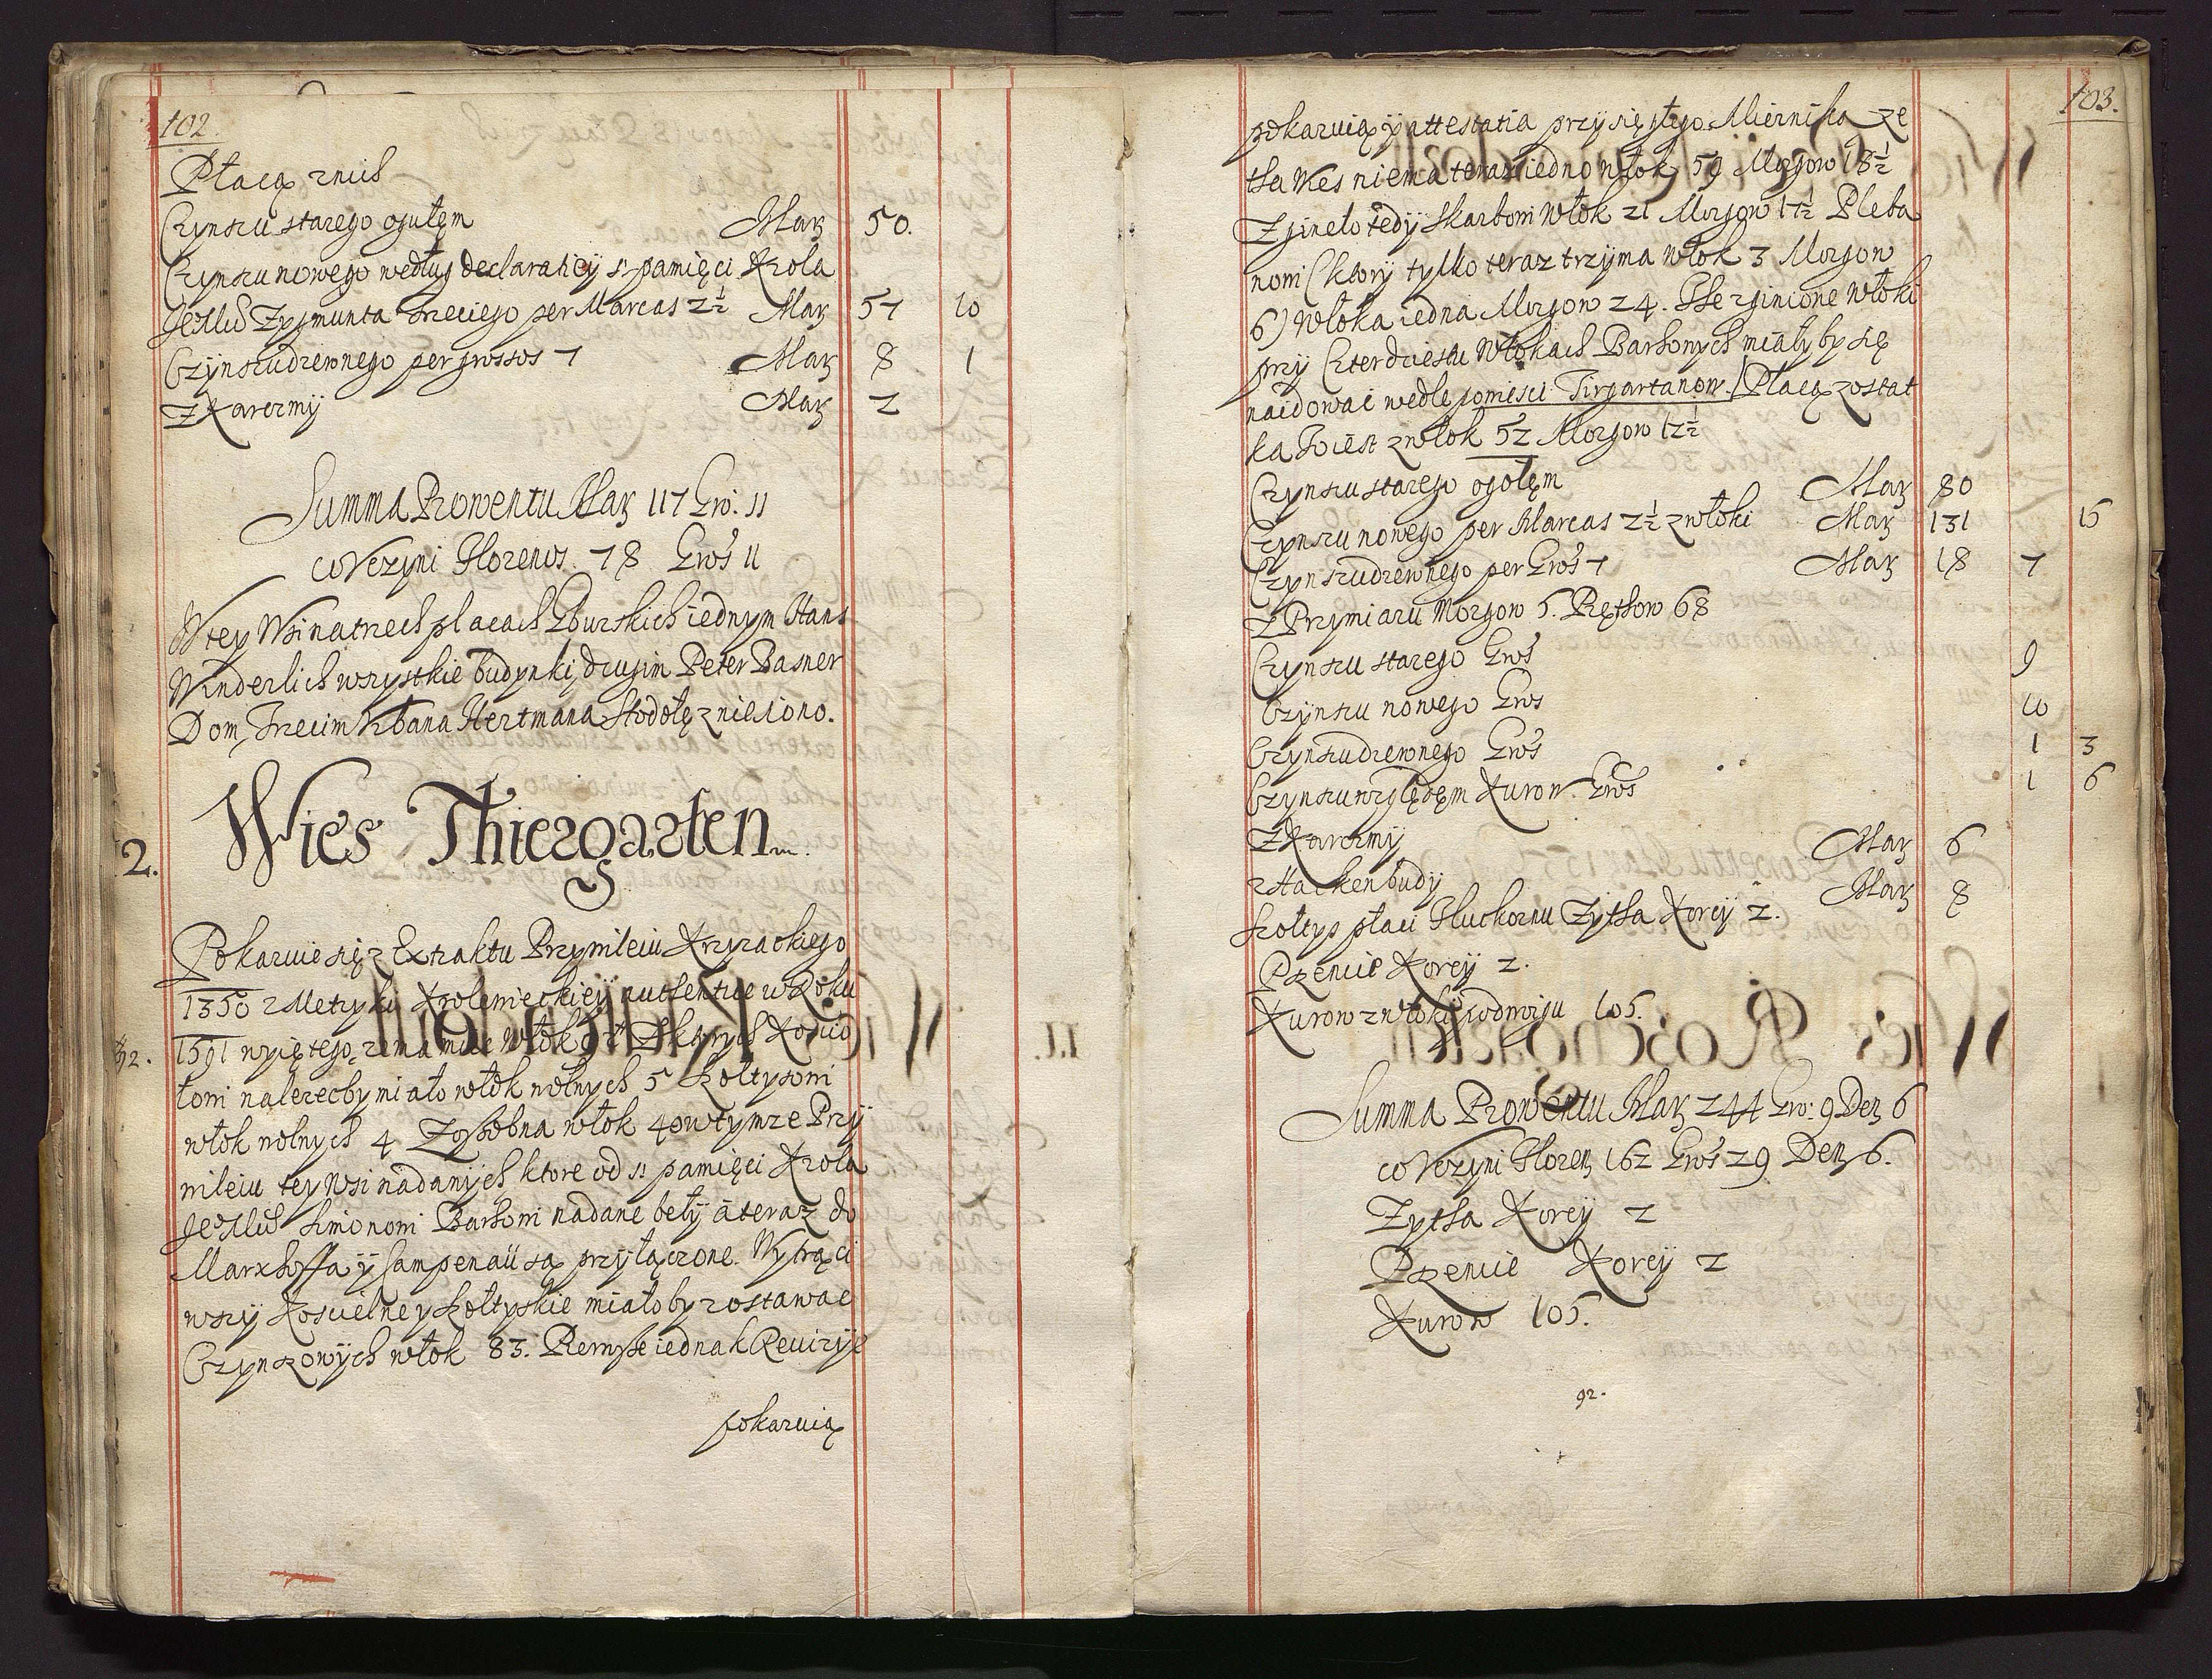 102.
Płacą znich
Czynszu starego ogułem Marz 50.
Czynszu nowego według declaratiey s. pamięci Krola
JeMci Zygmunta Trzeciego per Marcas 2½ Marz 57 10
Czynszu drzewnego per grossos 7 Marz 8 1
Z Karczmÿ Marz 2
Summa Prowentu Marz 117 Gro: 11
co Vczyni Florenos. 78 Gros 11
W tey Wsi na trzech placach Zburskich iednym Hans
Winderlich wszystkie budynki, drugim Peter Basner
Dom, Trzecim Vrbana Hertmana Stodołę zniesiono.
2. Wies Thiergarten
Pokazuie się z Extraktu Przywileiu Krzyzackiego
1350 z Metryki Krolewieckieÿ authentice w Roku
92. 1591 wyiętego, ze ma mieć Włok 92 Zktorych Koscio
łowi nalezećby miało włok wolnych 5 Szołtysowi
włok wolnych 4 Zosobna włok 40 w tymze Przy
wileiu tey Wsi nadanÿch ktore od s. pamięci Krola
JeMci Simonowi Barhowi nadane bełÿ a teraz do
Marxhoffa ÿ Campenaü są przÿłączone. Wytrąci
wszÿ Koscielne y Szołtyskie miałoby zostawać
Czynszowÿch włok 83. Pierwsze iednak Rewizÿe
pokazuią
103.
pokazuią ÿ attestatia przysięgłego Miernika ze
tha Wies niema teraz iedno włok 59 Morgow 18½
Zgineło tedÿ Skarbowi Włok 21 Morgow 17½ Pleba
nowi (ktorÿ tylko teraz trzÿma Włok 3 Morgow
6) Włoka iedna Morgow 24. The zginione Włoki
przÿ Czterdziestu Włokach Barhowych miałyby się
naidować wedle powiesci Tirgartanow. Płacą zostat
ka To iest z włok 52 Morgow 12½
Czynszu starego ogołem Marz 80
Czynszu nowego per Marcas 2½ z włoki Marz 131 15
Czynszu drzewnego per Gros 7 Marz 18 7
Z Przymiaru Morgow 5. Prętow 68
Czynszu starego Gros 9
Czÿnszu nowego Gros 10
Czynszu drzewnego Gros 1 3
Czynszu względem Kurow Gros 1 6
Z Karczmÿ Marz 6
z Hackenbudÿ Marz 8
Szołtys płaci Pluchkornu Zytha Korcÿ 2.
Pszenice Korcÿ 2.
Kurow z włoki po dwoygu 105.
Summa Prowentu Marz 244 Gro: 9 Den 6
co Vczyni Floren 162 Gros 29 Den 6.
Zytha Korcÿ 2
Pszenice Korcÿ 2
Kurow 105.
92.